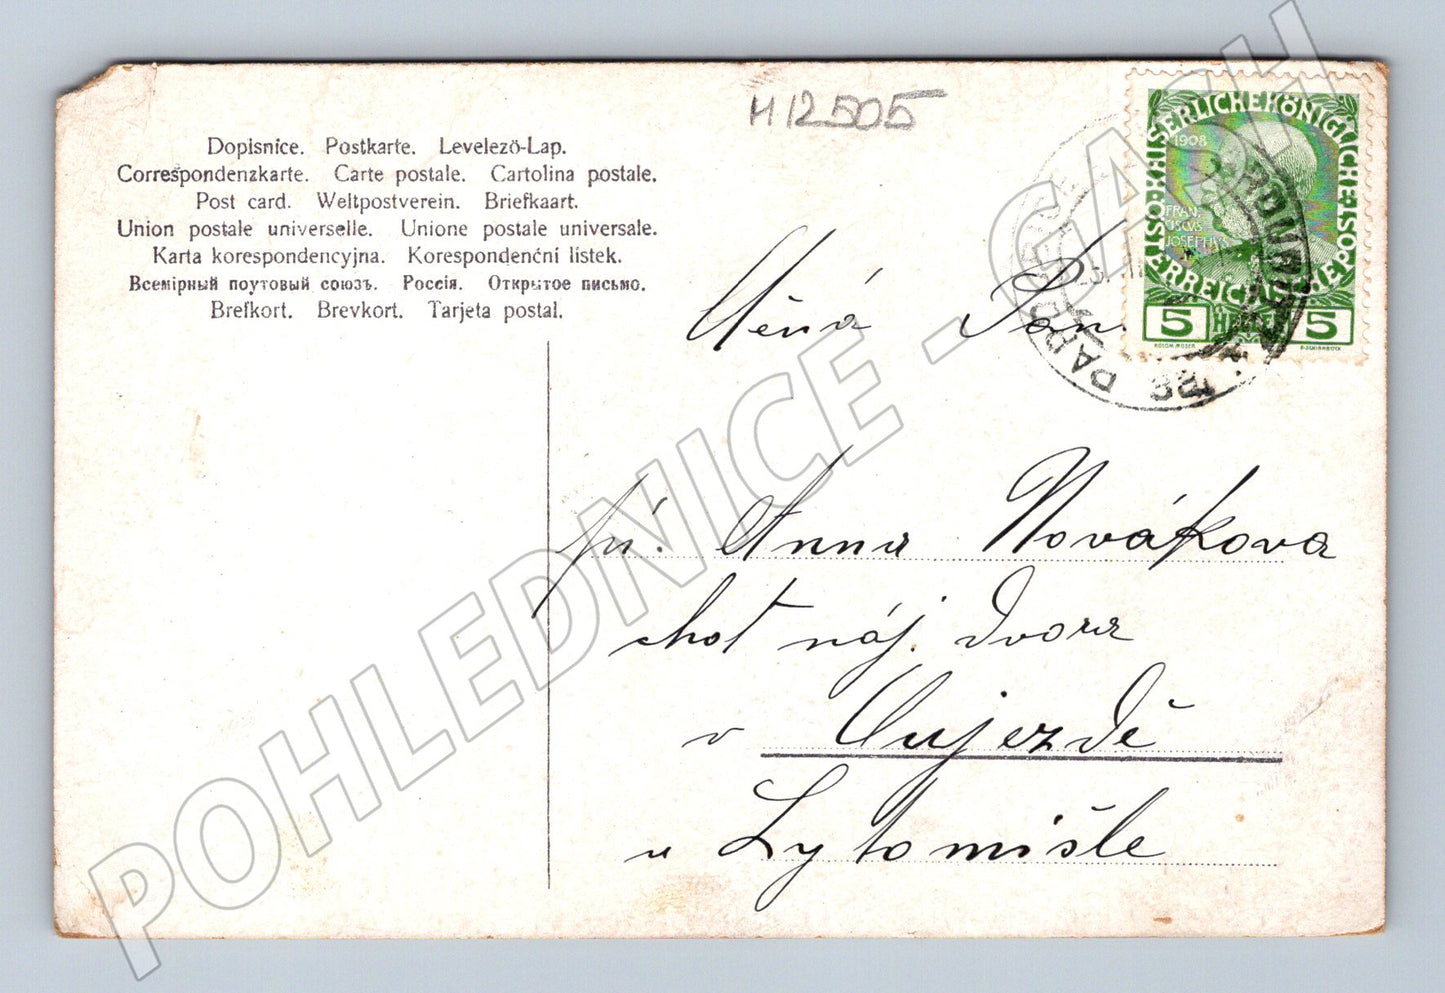 H12505
Dopisnice. Postkarte. Levelező-Lap.
Correspondenzkarte. Carte postale. Cartolina postale.
Post card. Weltpostverein. Briefkaart.
Union postale universelle. Unione postale universale.
Karta korespondencyjna. Korespondenčni listek.
Всемірный поутовый союзъ. Россія. Открытое письмо.
Brefkort. Brevkort. Tarjeta postal.
KAISERLICHEKÖNIGLICHE
ÖSTERREICHISCHE POST
1908
FRAN
ISCUS
JOSEPHVS
5 HELLER 5
KOLOM. MOSER
F. SCHIRNBÖCK
PARDUBICE
Ctěná Paní
pí. Anna Novákova
choť náj. dvora
v Oujezdě
u Lytomišle
POHLEDNICE - CASH